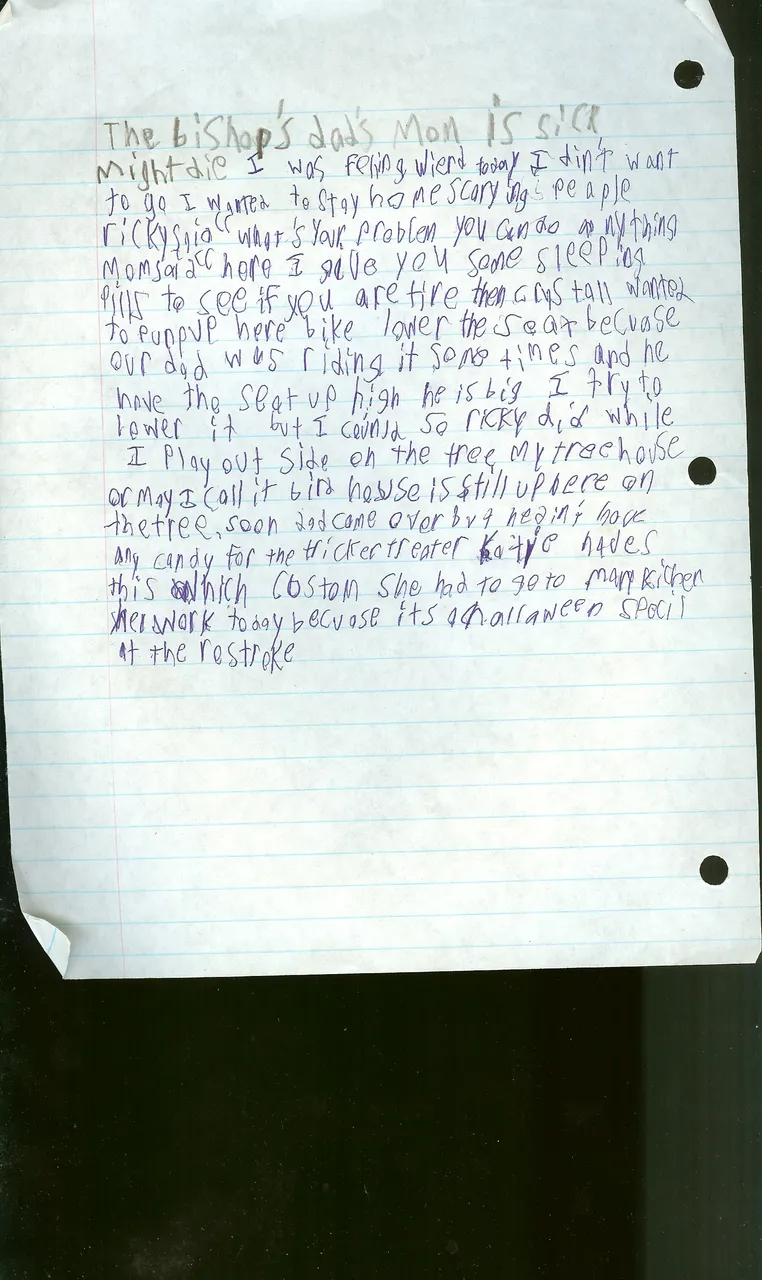 The bishop's dad's Mom is sick
Might die I was feling wierd today I din't want
to go I wanted to stay home scarying peaple
ricky said "what's your problem you can do anything
Mom said "here I gave you some sleeping
pills to see if you are tire then crystall wanted
to pump up here bike lower the seat becuase
our dad was riding it some times and he
have the seat up high he is big I try to
lower it but I could so ricky did while
I Play out side on the tree my treehouse
or may I call it bird house is still up here on
the tree, soon dad come over but he din't have
any candy for the tricker treater Katie hades
this which costom she had to go to mary kichen
her work today becuase its a halloween specil
at the restroke